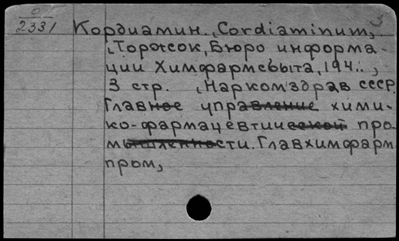 0
2331
3
Кордиамин., Cordiaminum,
, Торжок, Бюро информа-
ции Химфармсбыта, 194..,
3 стр. , Наркомздрав СССР.
Главное управление хими-
ко-фармацевтической про
мышленности. Главхимфарм
пром,